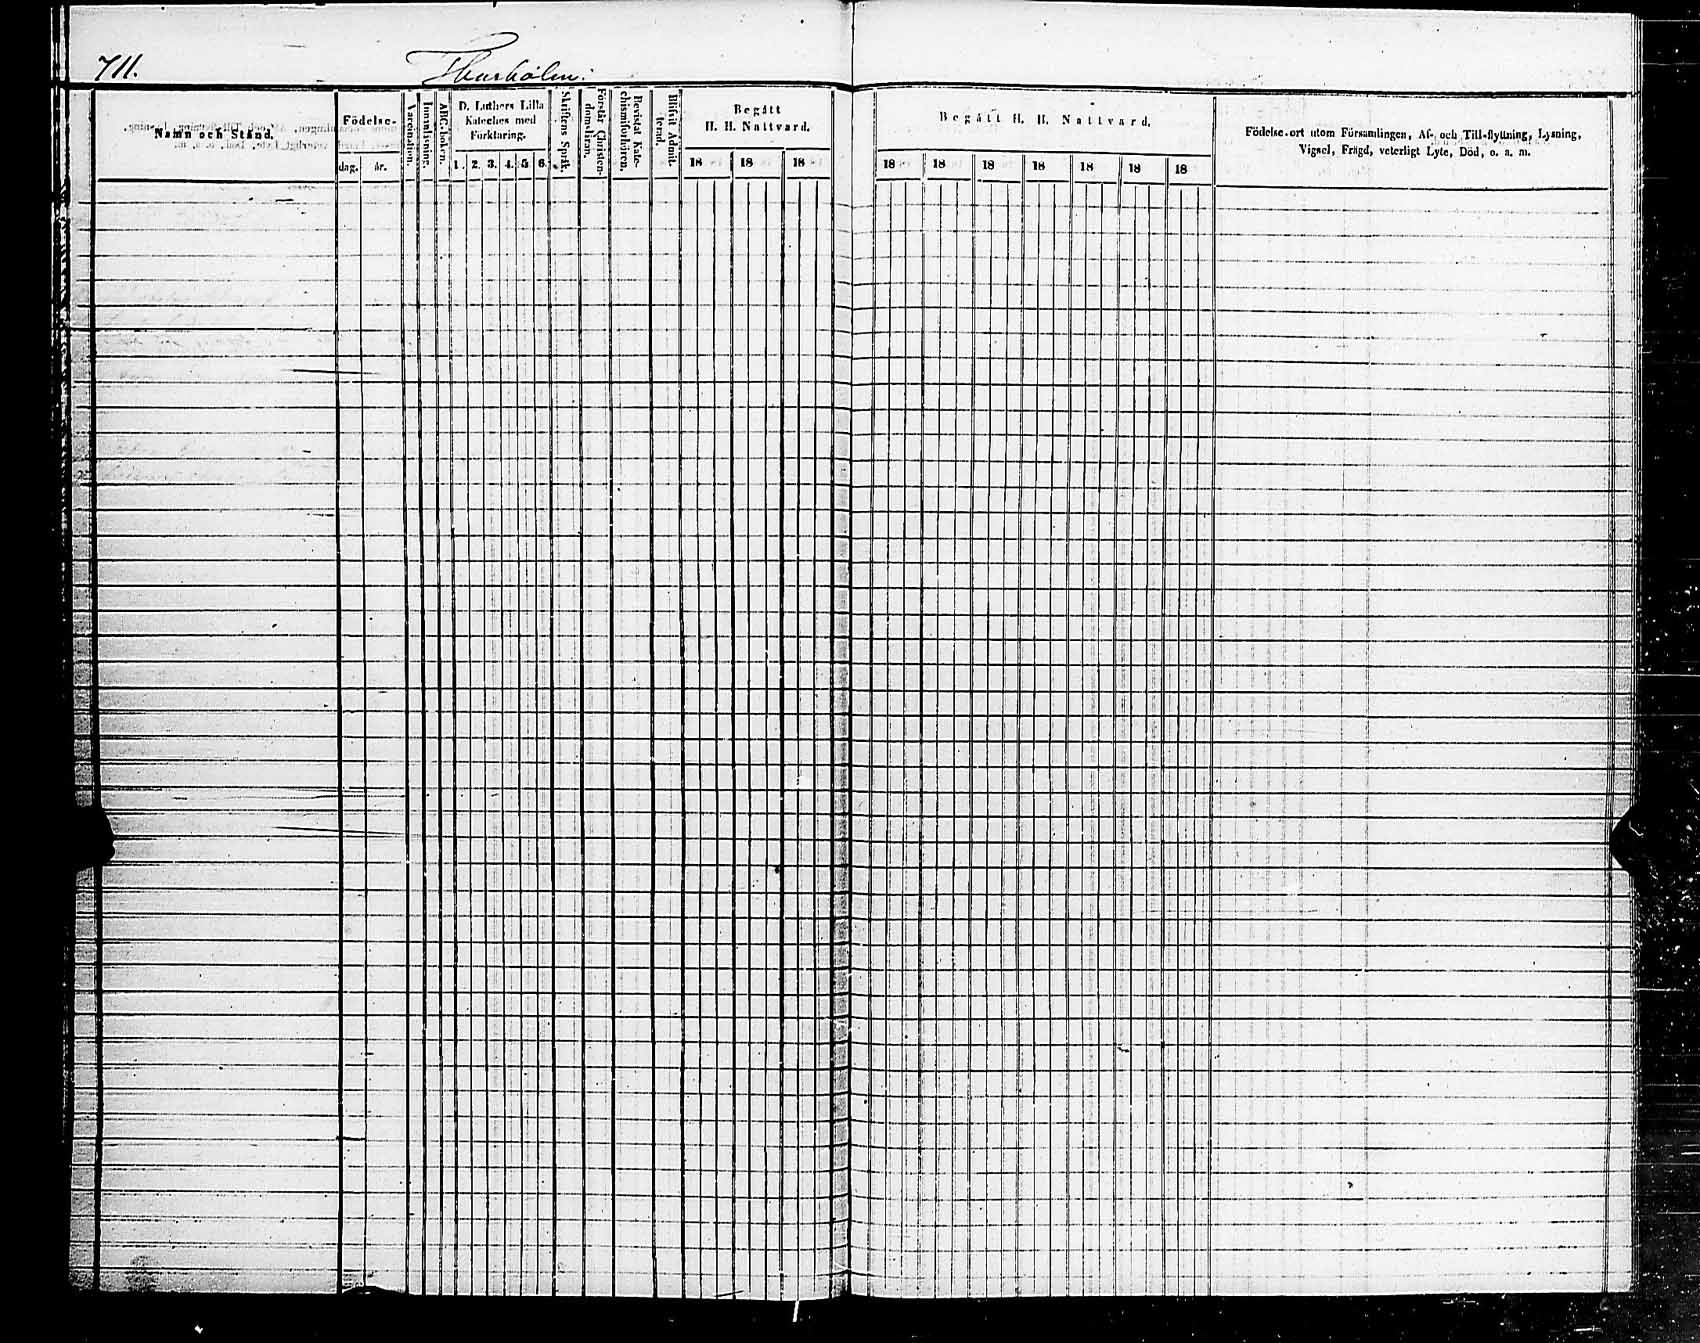 711.
Thurholm.
Namn och Stånd.
Födelse-
dag. år.
Vaccination.
Innanläsning.
ABC-boken.
D. Luthers Lilla
Kateches med
Förklaring.
1. 2. 3. 4. 5 6.
Skriftens Språk.
Förstår Christen-
domsläran.
Bevistat Kate-
chismiförhören.
Blifvit Admit-
terad.
Begått
H. H. Nattvard.
18 18 18
Begått H. H. Nattvard.
18 18 18 18 18 18 18
Födelse-ort utom Församlingen, Af- och Till-flyttning, Lysning,
Vigsel, Frägd, veterligt Lyte, Död, o. a. m.